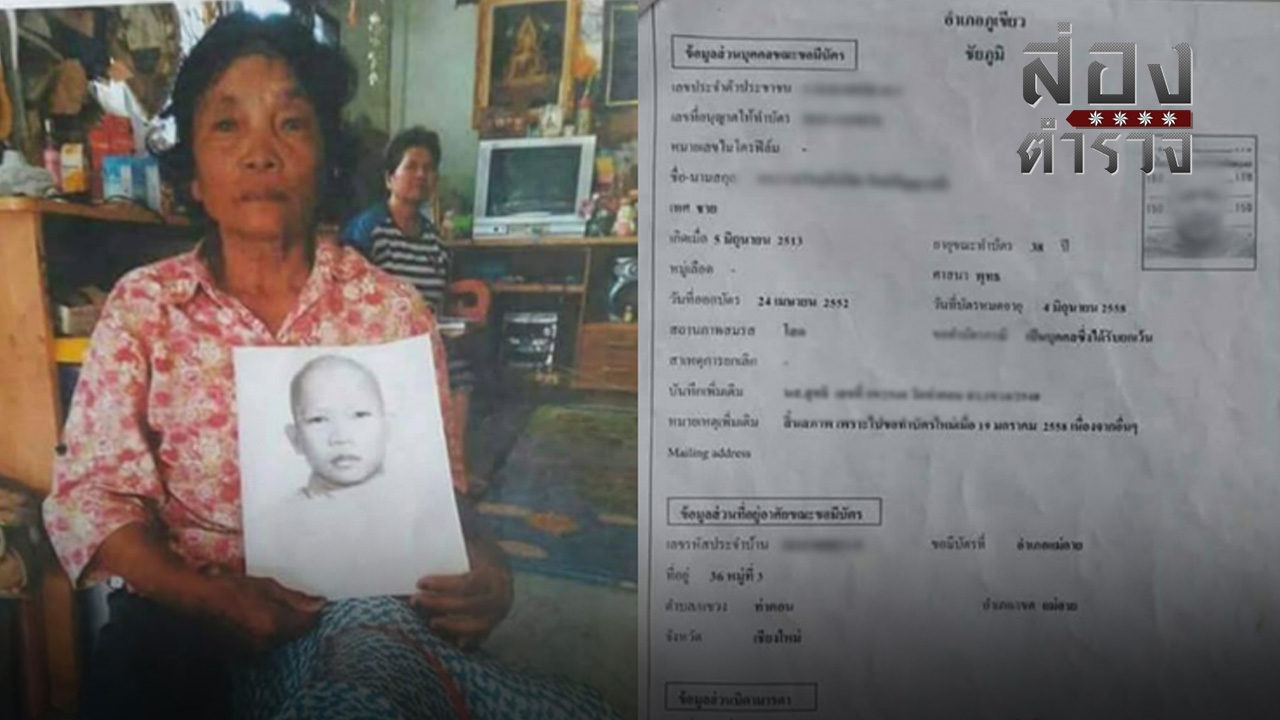 อำเภอภูเขียว
ชัยภูมิ
ส่อง
ตำรวจ
ข้อมูลส่วนบุคคลขณะขอมีบัตร
เลขประจำตัวประชาชน
เลขที่อนุญาตให้ทำบัตร
หมายเลขไมโครฟิล์ม -
ชื่อ-นามสกุล
เพศ ชาย
เกิดเมื่อ 5 มิถุนายน 2513 อายุขณะทำบัตร 38 ปี
หมู่เลือด - ศาสนา พุทธ
วันที่ออกบัตร 24 เมษายน 2552 วันที่บัตรหมดอายุ 4 มิถุนายน 2558
สถานภาพสมรส โสด เป็นบุคคลซึ่งได้รับยกเว้น
สาเหตุการยกเลิก -
บันทึกเพิ่มเติม
หมายเหตุเพิ่มเติม สิ้นสภาพ เพราะไปขอทำบัตรใหม่เมื่อ 19 มกราคม 2558 เนื่องจากอื่นๆ
Mailing address
ข้อมูลส่วนที่อยู่อาศัยขณะขอมีบัตร
เลขรหัสประจำบ้าน ขอมีบัตรที่ อำเภอแม่อาย
ที่อยู่ 36 หมู่ที่ 3
ตำบล/แขวง ท่าตอน อำเภอ/เขต แม่อาย
จังหวัด เชียงใหม่
ข้อมูลส่วนบิดามารดา
170
150 150